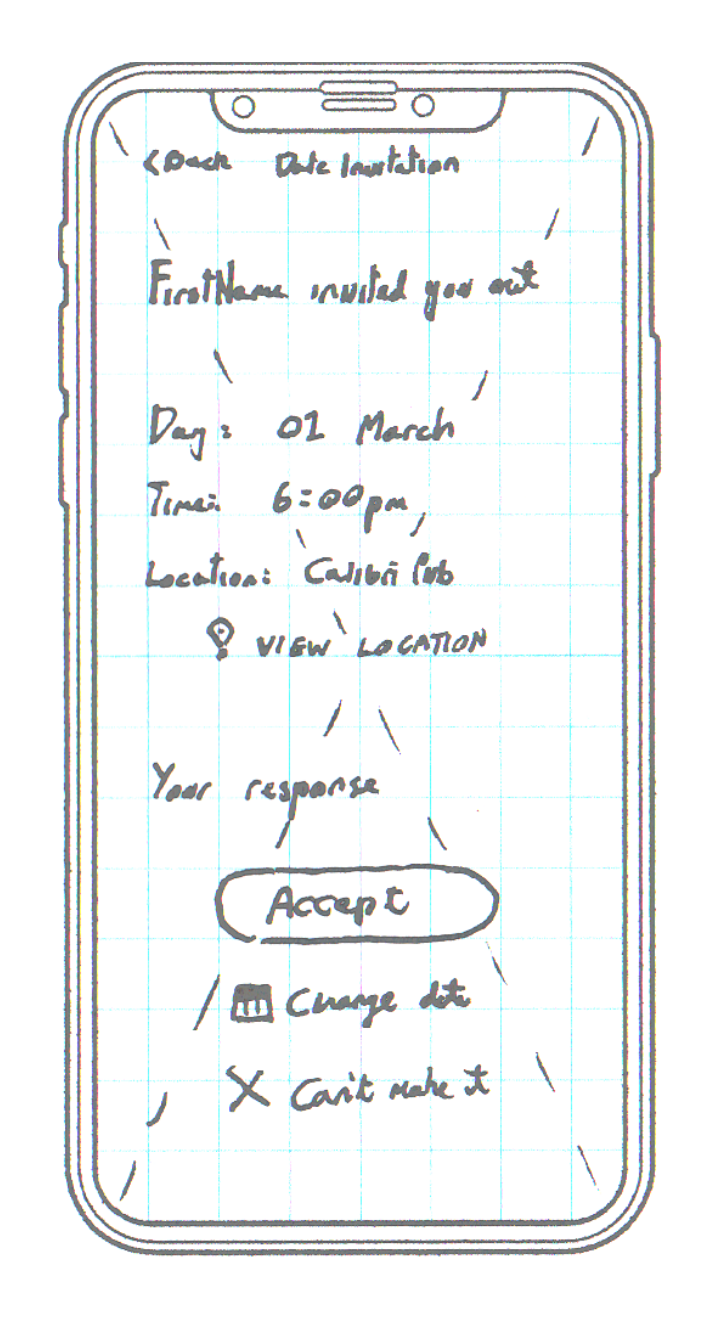 < Back Date Invitation
FirstName invited you out
Day: 01 March
Time: 6:00pm
Location: Calibri Pub
VIEW LOCATION
Your response
Accept
Change date
Can't make it